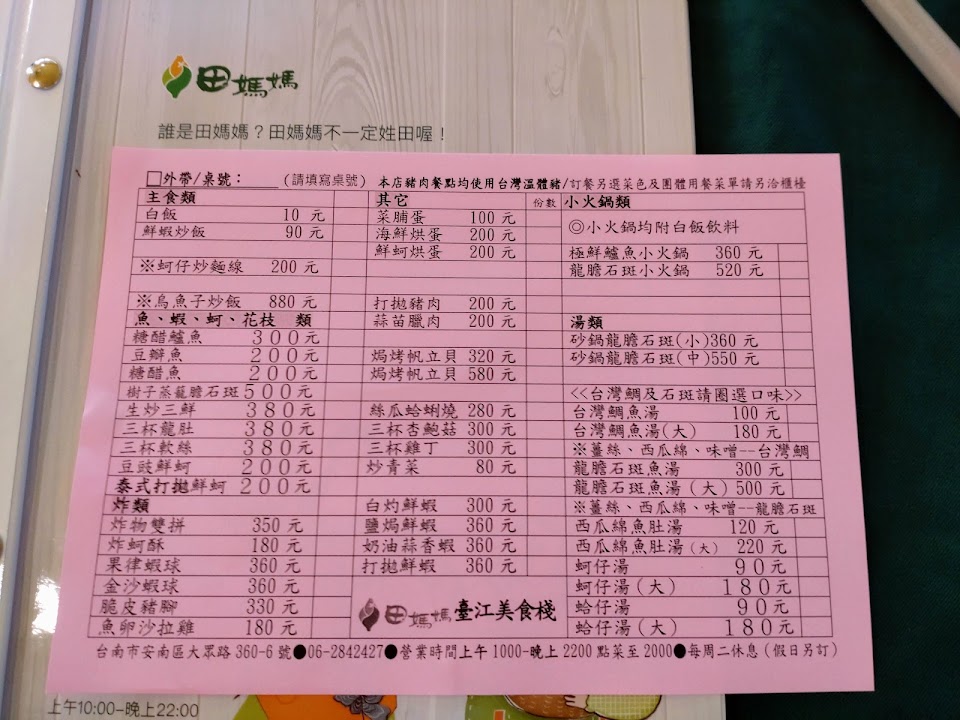 田媽媽
誰是田媽媽？田媽媽不一定姓田喔！
□外帶/桌號：＿＿＿(請填寫桌號) 本店豬肉餐點均使用台灣溫體豬/訂餐另選菜色及團體用餐菜單請另洽櫃檯
主食類
白飯 10 元
鮮蝦炒飯 90 元
※蚵仔炒麵線 200 元
※烏魚子炒飯 880 元
魚、蝦、蚵、花枝 類
糖醋鱸魚 300元
豆瓣魚 200元
糖醋魚 200元
樹子蒸龍膽石斑 500元
生炒三鮮 380元
三杯龍肚 380元
三杯軟絲 380元
豆豉鮮蚵 200元
泰式打拋鮮蚵 200元
炸類
炸物雙拼 350 元
炸蚵酥 180 元
果律蝦球 360 元
金沙蝦球 360 元
脆皮豬腳 330 元
魚卵沙拉雞 180 元
其它 份數
菜脯蛋 100 元
海鮮烘蛋 200 元
鮮蚵烘蛋 200 元
打拋豬肉 200 元
蒜苗臘肉 200 元
焗烤帆立貝 320 元
焗烤帆立貝 580 元
絲瓜蛤蜊燒 280 元
三杯杏鮑菇 300 元
三杯雞丁 300 元
炒青菜 80 元
白灼鮮蝦 300 元
鹽焗鮮蝦 360 元
奶油蒜香蝦 360 元
打拋鮮蝦 360 元
田媽媽 臺江美食棧
小火鍋類
◎小火鍋均附白飯飲料
極鮮鱸魚小火鍋 360 元
龍膽石斑小火鍋 520 元
湯類
砂鍋龍膽石斑(小)360 元
砂鍋龍膽石斑(中)550 元
<<台灣鯛及石斑請圈選口味>>
台灣鯛魚湯 100 元
台灣鯛魚湯(大) 180 元
※薑絲、西瓜綿、味噌--台灣鯛
龍膽石斑魚湯 300 元
龍膽石斑魚湯 (大) 500 元
※薑絲、西瓜綿、味噌--龍膽石斑
西瓜綿魚肚湯 120 元
西瓜綿魚肚湯(大) 220 元
蚵仔湯 90元
蚵仔湯(大) 180元
蛤仔湯 90元
蛤仔湯(大) 180元
台南市安南區大眾路 360-6 號●06-2842427●營業時間上午 1000-晚上 2200 點菜至 2000●每周二休息（假日另訂）
上午10:00-晚上22:00